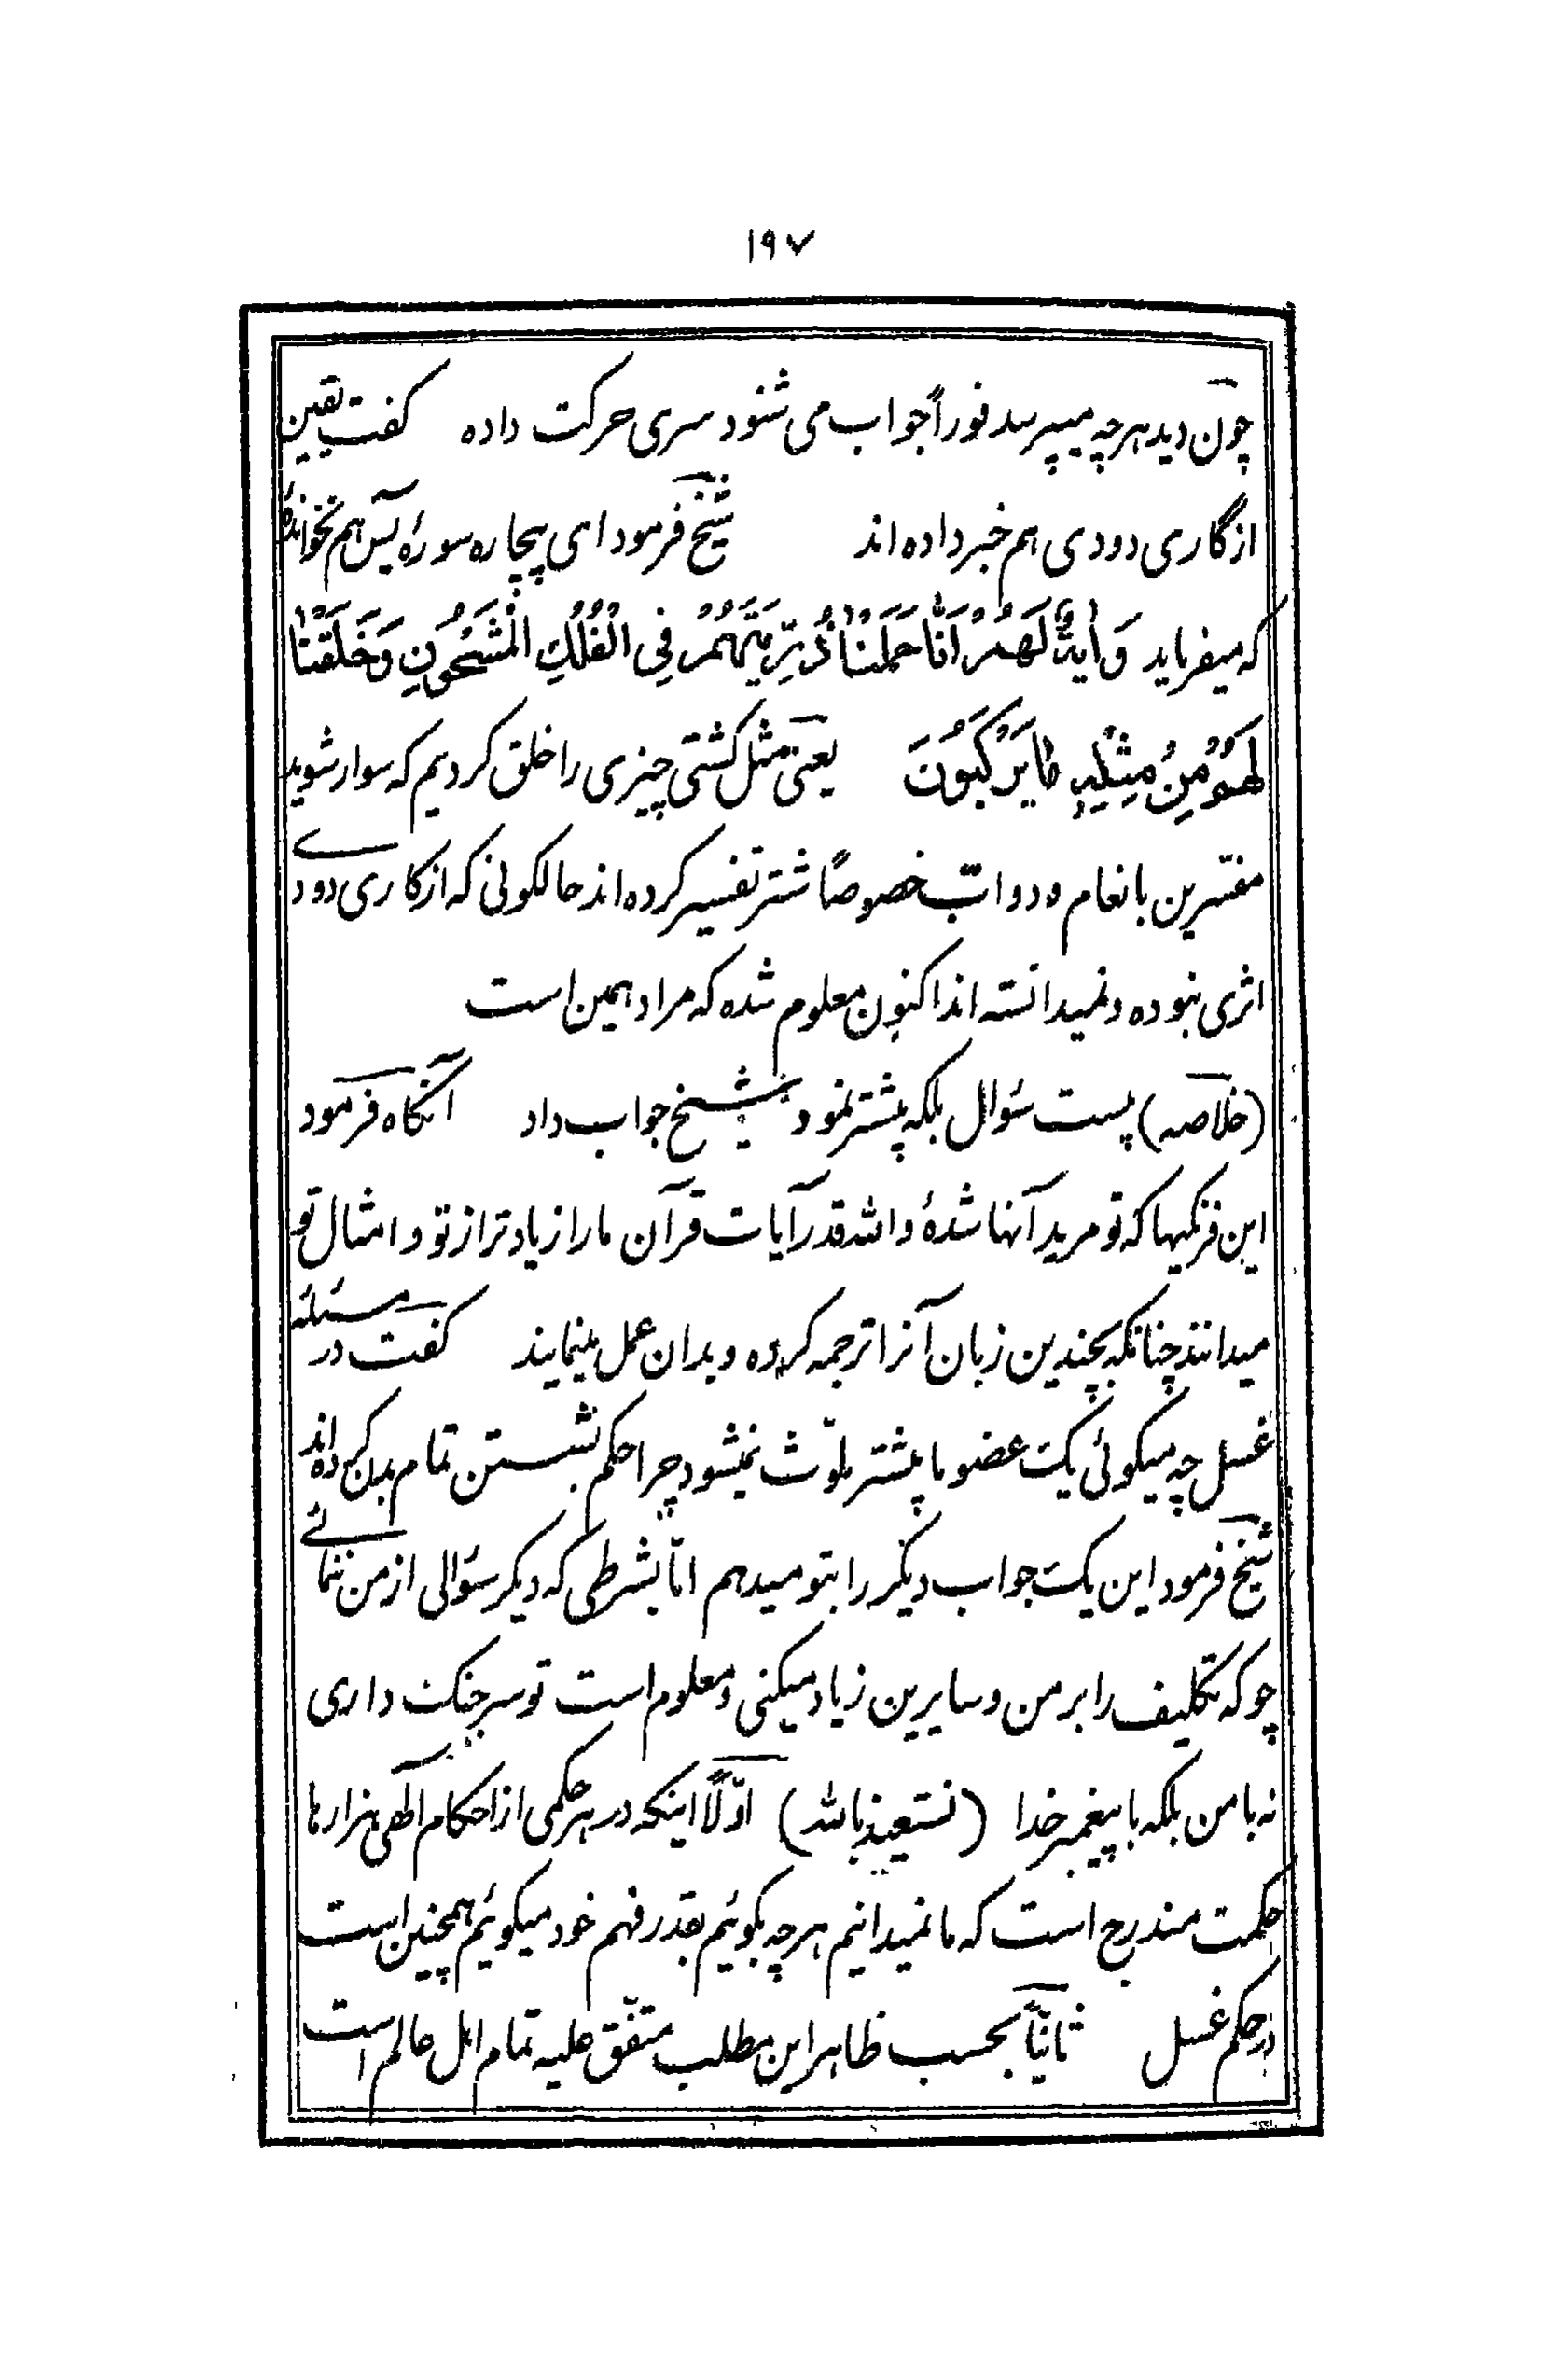 ۱۹۷
چون دید هر چه میپرسد فوراً جواب می شنود سری حرکت داده گفت یقین
از گاری دودی هم خبر داده اند شیخ فرمود ای بیچاره سورهٔ یس هم نخواندهٔ
که میفرماید وَ اٰیَةٌ لَهُمْ اَنّٰا حَمَلْنٰا ذُرِّیَّتَهُمْ فِی الْفُلْكِ الْمَشْحُونِ وَ خَلَقْنٰا
لَهُمْ مِنْ مِثْلِهِ مٰا یَرْكَبُونَ یعنی مثل کشتی چیزی را خلق کردیم که سوار شوید
مفسّرین بانعام و دوابّ خصوصاً شتر تفسیر کرده اند حالکونی که از کاری دودی
اثری نبوده و نمیدانسته اند اکنون معلوم شده که مراد همین است
(خلاصه) بیست سؤال بلکه بیشتر نمود شیخ جواب داد آنگاه فرمود
این فرنگیها که تو مرید آنها شدهٔ والله قدر آیات قرآن ما را زیادتر از تو و امثال تو
میدانند چنانکه بچندین زبان آنرا ترجمه کرده و بدان عمل مینمایند گفت در مسئله
غسل چه میگوئی یک عضو ما بیشتر ملوّث نمیشود چرا حکم بشستن تمام بدن کرده‌اند
شیخ فرمود این یک جواب دیگر را بتو میدهم امّا بشرطی که دیگر سؤالی از من ننمائی
چو که تکلیف را بر من و سایرین زیاد میکنی و معلوم است تو سر جنگ داری
نه با من بلکه با پیغمبر خدا (نستعیذ بالله) اوّلاً اینکه در هر حکمی از احکام الٓهی هزارها
حکمت مندرج است که ما نمیدانیم هر چه بگوئیم بقدر فهم خود میگوئیم همچنین است
در حکم غسل ثانیاً بحسب ظاهر این مطلب متّفق علیه تمام اهل عالم است